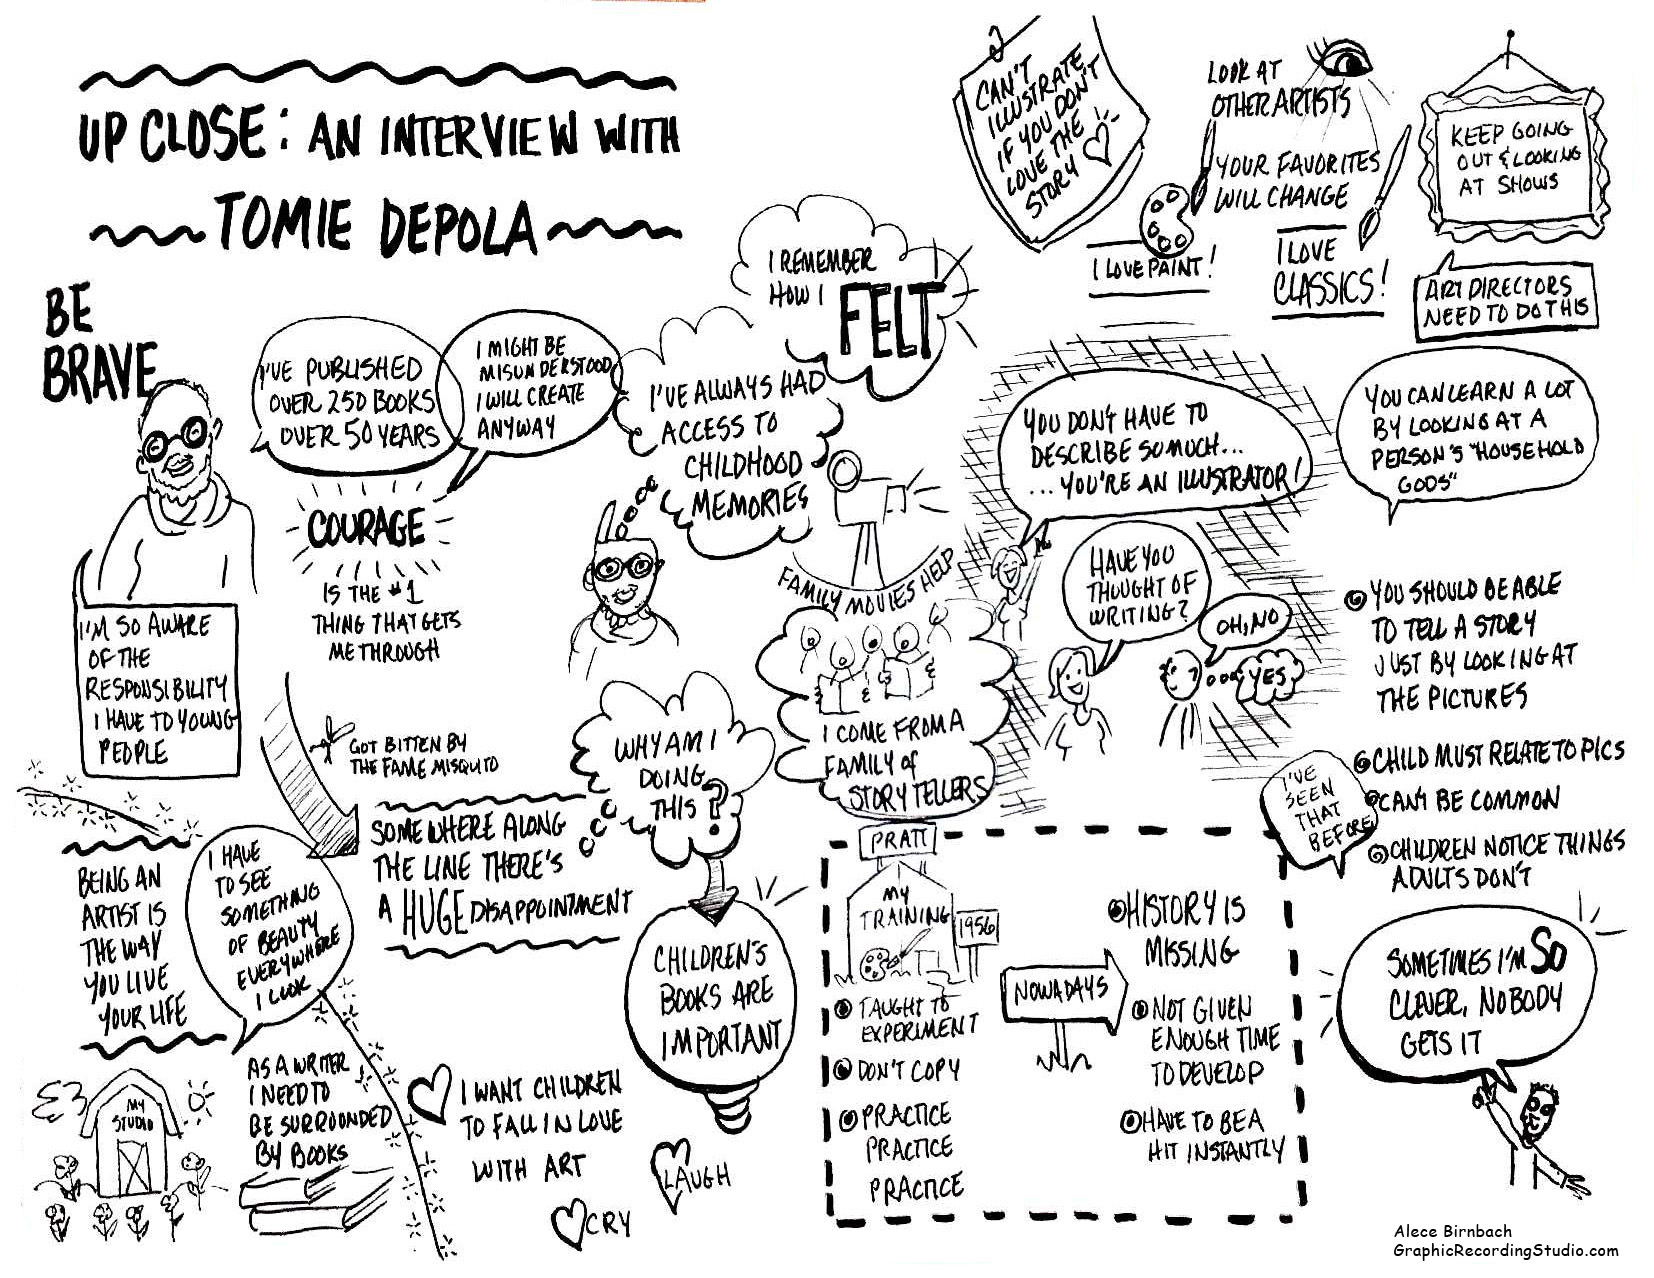 UP CLOSE: AN INTERVIEW WITH
TOMIE DEPOLA
BE
BRAVE
I'VE PUBLISHED
OVER 250 BOOKS
OVER 50 YEARS
I MIGHT BE
MISUNDERSTOOD
I WILL CREATE
ANYWAY
COURAGE
IS THE #1
THING THAT GETS
ME THROUGH
I'M SO AWARE
OF THE
RESPONSIBILITY
I HAVE TO YOUNG
PEOPLE
I REMEMBER
HOW I
FELT
I'VE ALWAYS HAD
ACCESS TO
CHILDHOOD
MEMORIES
FAMILY MOVIES HELP
I COME FROM A
FAMILY of
STORYTELLERS
CAN'T
ILLUSTRATE
IF YOU DON'T
LOVE THE
STORY
LOOK AT
OTHER ARTISTS
YOUR FAVORITES
WILL CHANGE
I LOVE PAINT!
I LOVE
CLASSICS!
KEEP GOING
OUT & LOOKING
AT SHOWS
ART DIRECTORS
NEED TO DO THIS
YOU DON'T HAVE TO
DESCRIBE SO MUCH...
...YOU'RE AN ILLUSTRATOR!
HAVE YOU
THOUGHT OF
WRITING?
OH, NO
YES
YOU CAN LEARN A LOT
BY LOOKING AT A
PERSON'S "HOUSEHOLD
GODS"
YOU SHOULD BE ABLE
TO TELL A STORY
JUST BY LOOKING AT
THE PICTURES
CHILD MUST RELATE TO PICS
CAN'T BE COMMON
CHILDREN NOTICE THINGS
ADULTS DON'T
I'VE
SEEN
THAT
BEFORE
SOMETIMES I'M SO
CLEVER, NOBODY
GETS IT
GOT BITTEN BY
THE FAME MISQUITO
SOMEWHERE ALONG
THE LINE THERE'S
A HUGE DISAPPOINTMENT
WHY AM I
DOING
THIS?
CHILDREN'S
BOOKS ARE
IMPORTANT
BEING AN
ARTIST IS
THE WAY
YOU LIVE
YOUR LIFE
I HAVE
TO SEE
SOMETHING
OF BEAUTY
EVERYWHERE
I LOOK
MY
STUDIO
AS A WRITER
I NEED TO
BE SURROUNDED
BY BOOKS
I WANT CHILDREN
TO FALL IN LOVE
WITH ART
LAUGH
CRY
PRATT
MY
TRAINING
1956
TAUGHT TO
EXPERIMENT
DON'T COPY
PRACTICE
PRACTICE
PRACTICE
NOWADAYS
HISTORY IS
MISSING
NOT GIVEN
ENOUGH TIME
TO DEVELOP
HAVE TO BE A
HIT INSTANTLY
Alece Birnbach
GraphicRecordingStudio.com